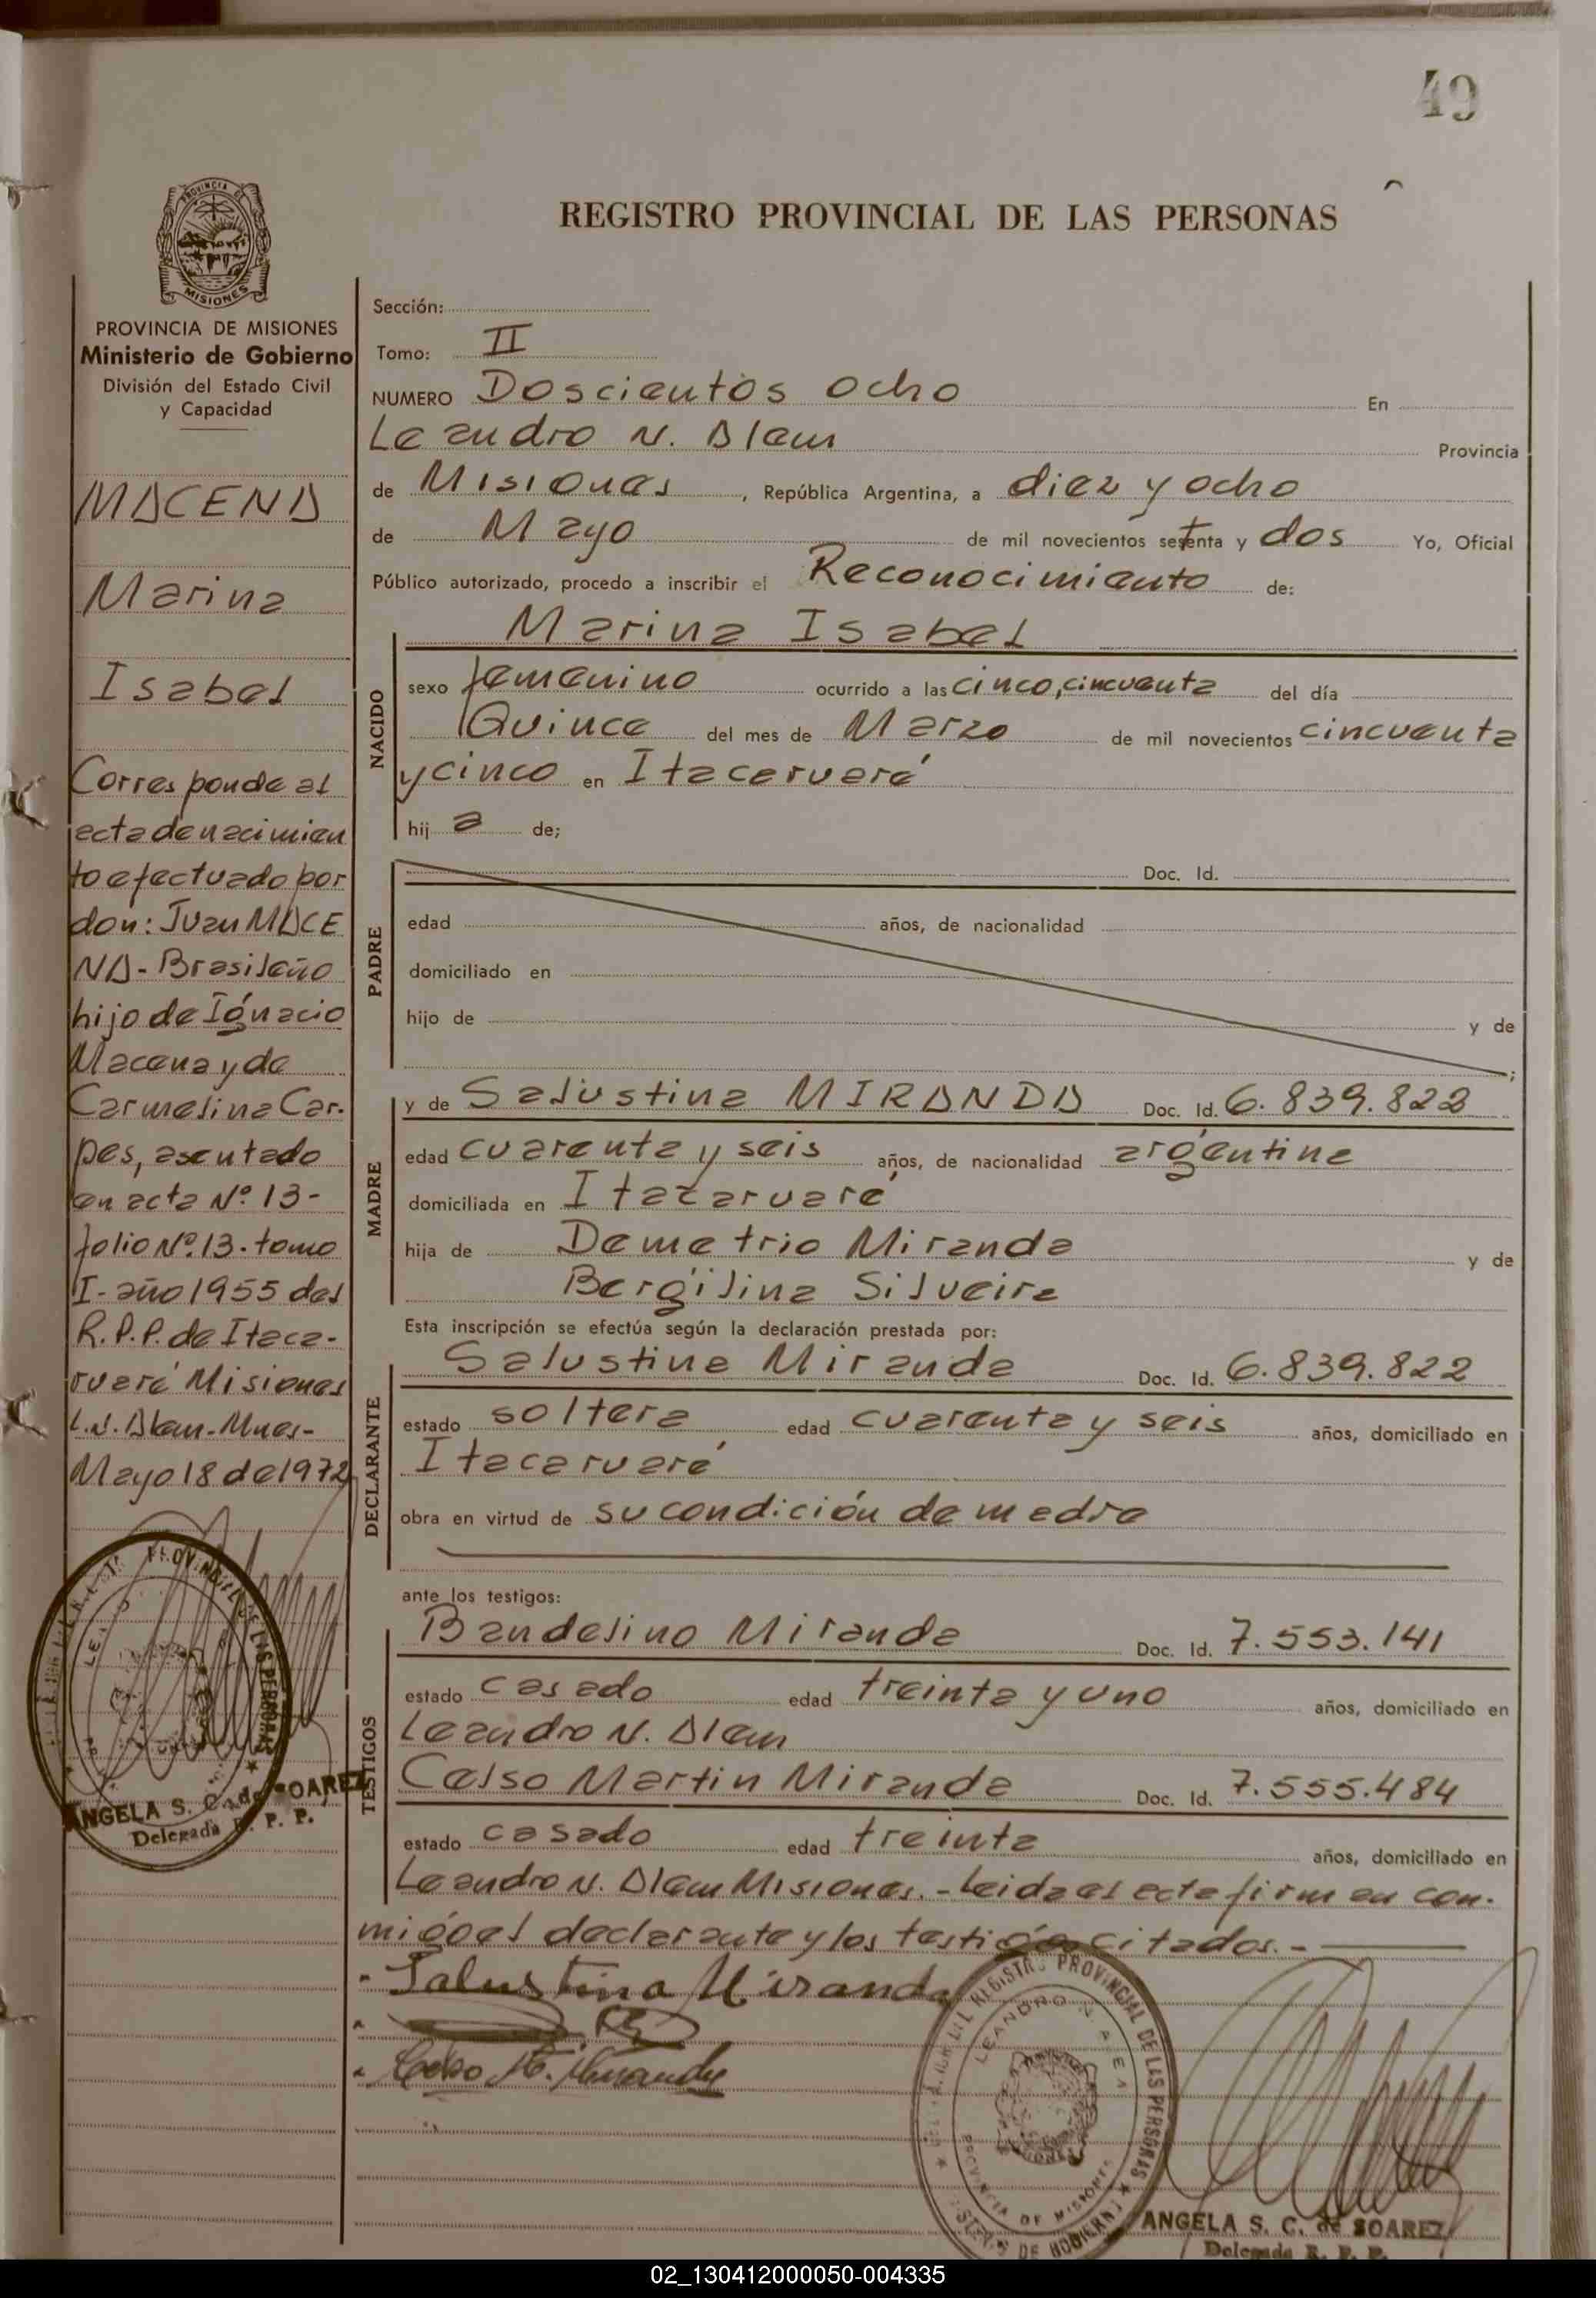 49
REGISTRO PROVINCIAL DE LAS PERSONAS
PROVINCIA DE
MISIONES
PROVINCIA DE MISIONES
Ministerio de Gobierno
División del Estado Civil
y Capacidad
MACENA
Marina
Isabel
Corresponde al
acta de nacimien
to efectuado por
don: Juan MACE
NA - Brasileño
hijo de Ignacio
Macena y de
Carmelina Car-
pes, asentado
en acta Nº 13-
folio Nº 13. tomo
I - año 1955 del
R.P.P. de Itaca-
ruaré Misiones
L.N. Alem - Mnes-
Mayo 18 de 1972
ANGELA S. C. de SOAREZ
Delegada R. P. P.
Sección:
Tomo: II
NUMERO Doscientos ocho En
Leandro N. Alem Provincia
de Misiones, República Argentina, a diez y ocho
de Mayo de mil novecientos setenta y dos Yo, Oficial
Público autorizado, procedo a inscribir el Reconocimiento de:
Marina Isabel
NACIDO
sexo femenino ocurrido a las cinco, cincuenta del día
Quince del mes de Marzo de mil novecientos cincuenta
y cinco en Itacaruaré
hij a de;
PADRE
Doc. Id.
edad años, de nacionalidad
domiciliado en
hijo de y de
;
MADRE
y de Salustina MIRANDA Doc. Id. 6.839.822
edad cuarenta y seis años, de nacionalidad argentina
domiciliada en Itacaruaré
hija de Demetrio Miranda y de
Bergilina Silveira
Esta inscripción se efectúa según la declaración prestada por:
DECLARANTE
Salustina Miranda Doc. Id. 6.839.822
estado soltera edad cuarenta y seis años, domiciliado en
Itacaruaré
obra en virtud de su condición de madre
ante los testigos:
TESTIGOS
Bandelino Miranda Doc. Id. 7.553.141
estado casado edad treinta y uno años, domiciliado en
Leandro N. Alem
Celso Martin Miranda Doc. Id. 7.555.484
estado casado edad treinta años, domiciliado en
Leandro N. Alem Misiones. - Leida el acta firman con-
migo el declarante y los testigos citados. -
Salustina Miranda
Celso M. Miranda
REGISTRO PROVINCIAL DE LAS PERSONAS
LEANDRO N. ALEM
PROVINCIA DE MISIONES
ANGELA S. C. de SOAREZ
Delegada R. P. P.
02_130412000050-004335